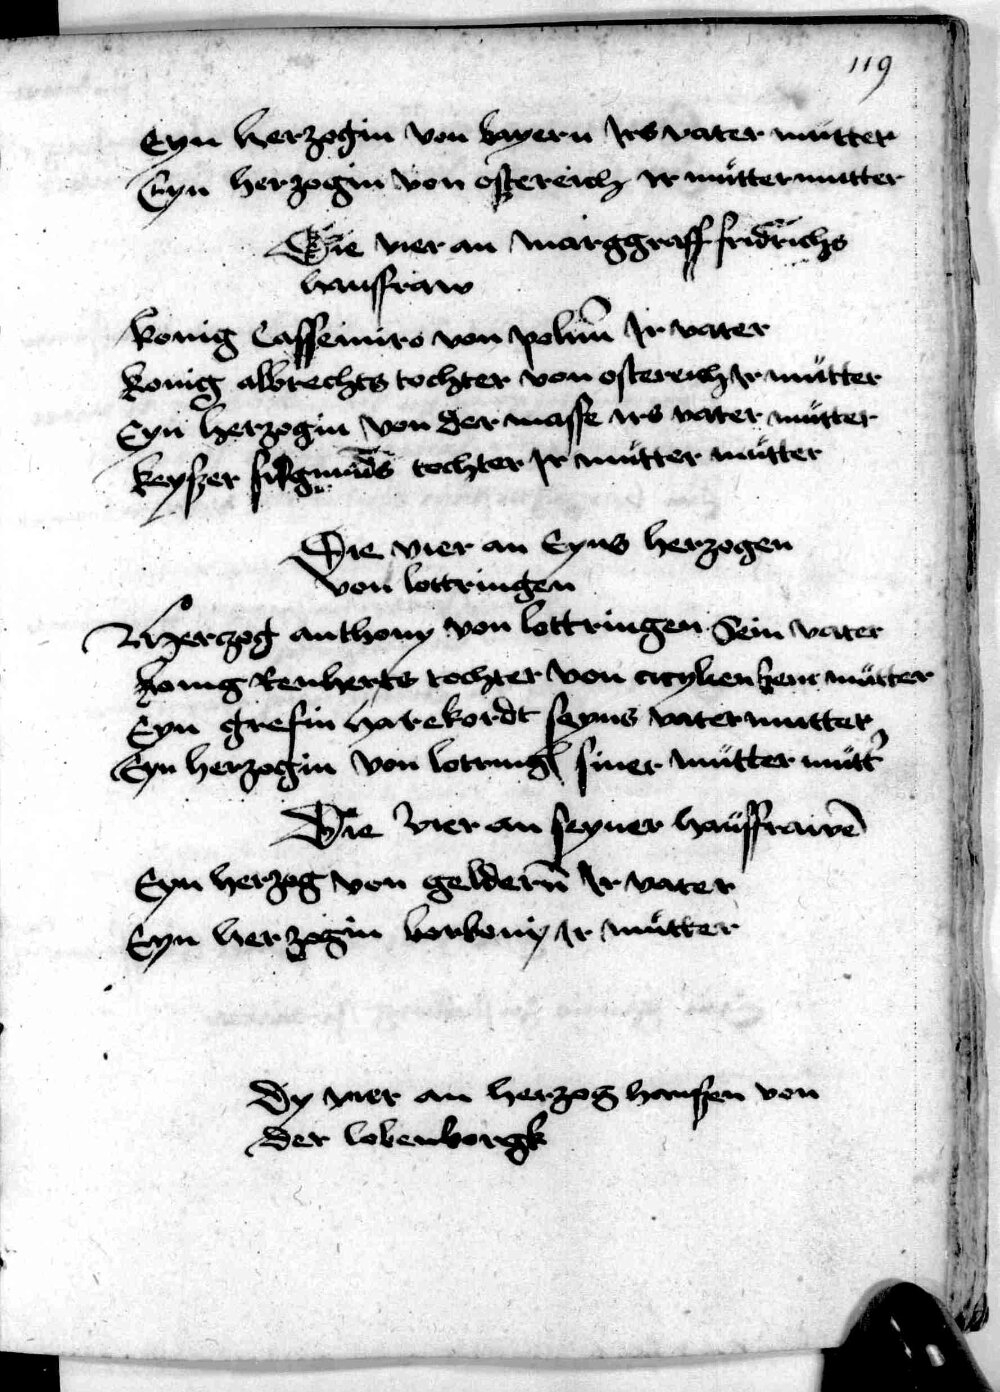 119
Eyn herzogin von bayern Irs vater mutter
Eyn herzogin von ostereich Ir mütter mutter
Die vier an marggraff fridrichs
hausfraw
konig Cassemiro von polnn̄ Ir vater
konig albrechts tochter von ostereich Ir mütter
Eyn herzogin von der masse irs vater mütter
keyszer sigmūds tochter Ir mütter mütter
Die vier an Eyns herzogen
von lottringen
Herczog anthony von lottringen Sein vater
konig Renherts tochter von cicylien sein mütter
Eyn grefin harekordt seyns vater mutter
Eyn herzogin von lotringē siner mütter mütt'
Die vier an seyner haüsfrawē
Eyn herzog von geldern̄ Ir vater
Eyn herzogin borbony Ir mütter
Dy vier an herzog hanszen von
der lobenborgk